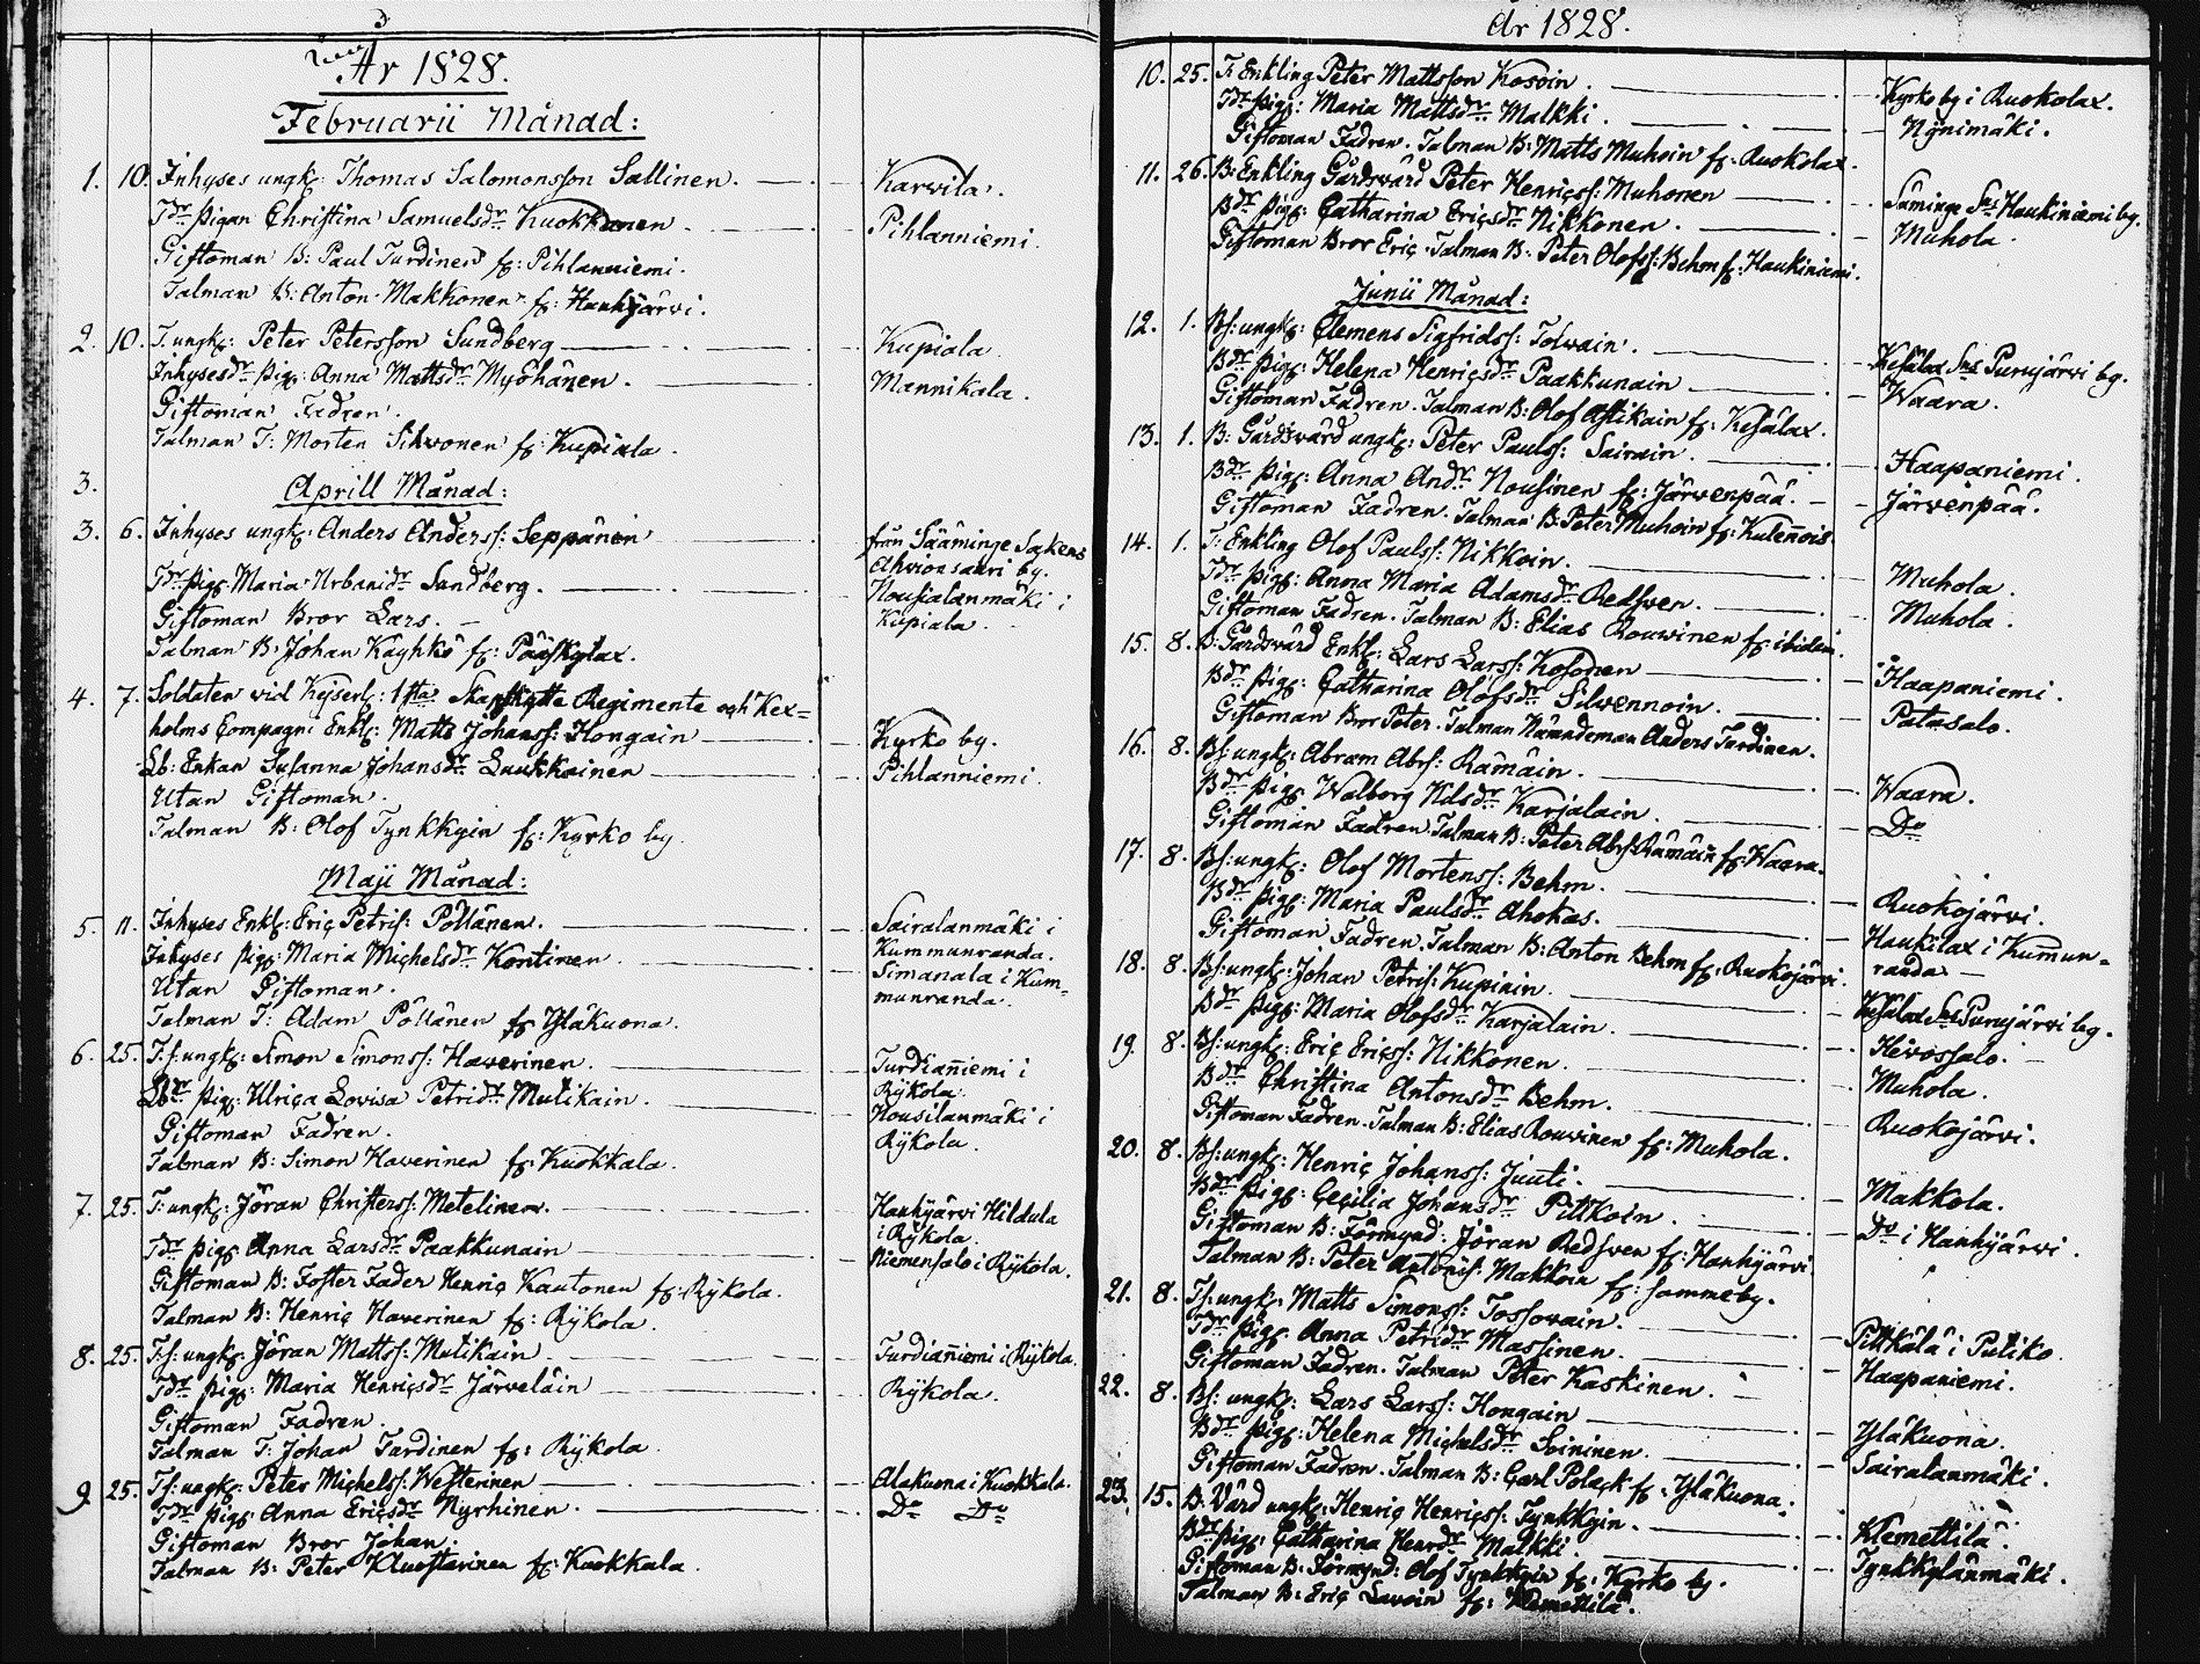 År 1828.
Februarii Månad:
1. 10. Inhyses ungk: Thomas Salomonsson Sallinen. Karvila.
Tdr pigan Christina Samuelsdr Kuokkanen. Pihlanniemi.
Giftoman B: Paul Turdinen fr: Pihlanniemi.
Talman B: Anton Makkonen fr: Hanhijärvi.
2. 10. T. ungk: Peter Petersson Sundberg Kupiala.
Inhysesdr pig: Anna Mattsdr Myöhänen. Mannikala.
Giftoman Fadren.
Talman T: Morten Silvonen fr: Kupiala.
3. Aprill Månad:
3. 6. Inhyses ungk: Anders Anderss: Seppänen från Sääminge Sockens
Ahvionsaari by.
Tdr pig: Maria Urbanidr Sundberg. Nousialanmäki i
Giftoman Bror Lars. Kupiala.
Talman B: Johan Käyhkö fr: Pääskylax.
4. 7. Soldaten vid Kejserl: 1sta Regimente och Kex=
holms Compagni Enkl: Matts Johanss: Hongain Kyrko by.
Lb: Enkan Susanna Johansdr Luukkainen Pihlanniemi.
Utan Giftoman.
Talman B: Olof Tynkkyin fr: Kyrko by.
Maji Månad:
5. 11. Inhyses Enkl: Eriç Petris: Pöllänen. Sairalanmäki i
Kummunranda.
Inhyses pig: Maria Michelsdr Kontinen. Simanala i Kum=
Utan Giftoman. munranda.
Talman T: Adam Pöllänen fr Yläkuona.
6. 25. T.s: ungk: Simon Simonss: Haverinen. Turdianniemi i
Rÿkola.
Lbdr pig: Ulriça Lovisa Petridr Mutikain. Nousilanmäki i
Giftoman Fadren. Rÿkola.
Talman B: Simon Haverinen fr: Kuokkala.
7. 25. T: ungk: Jöran Christerss: Metelinen. Hanhijärvi Hildula
i Rÿkola.
Tdr pig: Anna Larsdr Paakkunain Niemensalo i Rÿkola.
Giftoman B: Foster Fader Henriç Kautonen fr: Rÿkola.
Talman B: Henriç Haverinen fr: Rÿkola.
8. 25. T.s: ungk: Jöran Mattss: Mutikain Turdianniemi i Rÿkola.
Tdr pig: Maria Henriçsdr Järveläin Rÿkola.
Giftoman Fadren.
Talman T: Johan Turdinen fr: Rÿkola.
9. 25. Ts: ungk: Peter Michelss: Westerinen Alakuona i Kuokkala.
Tdr pig: Anna Eriçsdr Nyrhinen. Do Do
Giftoman Bror Johan.
Talman B: Peter Kluostarinen fr: Kuokkala.
År 1828.
10. 25. T: Enkling Peter Mattsson Kosoin. Kyrko by i Ruokolax.
Tdr pig: Maria Mattsdr Malkki. Nÿnimäki.
Giftoman Fadren. Talman B: Matts Muhoin fr: Ruokolax.
11. 26. B: Enkling Gårdsvärd Peter Henriçss: Muhonen Säminge Sns Haukiniemi by.
Bdr pig: Catharina Eriçsdr Nikkonen. Muhola.
Giftoman Bror Eriç. Talman B: Peter Olofss: Behm fr: Haukiniemi.
Junii Månad:
12. 1. Bs: ungk: Clemens Sigfridss: Tolvain. Kesälax Sns Purujärvi by.
Bdr pig: Helena Henriçsdr Paakkunain Waara.
Giftoman Fadren. Talman B: Olof Astikain fr: Kesälax.
13. 1. B: Gårdsvärd ungk: Peter Paulss: Sairain. Haapaniemi.
Bdr pig: Anna Anddr Nousinen fr: Järvenpää. Järvenpää.
Giftoman Fadren. Talman B: Peter Muhoin fr: Kulennois.
14. 1. T: Enkling Olof Paulss: Nikkoin. Muhola.
Tdr pig: Anna Maria Adamsdr Redsven. Muhola.
Giftoman Fadren. Talman B: Elias Rouvinen fr: ibidem.
15. 8. B: Gårdsvärd Enkl: Lars Larss: Kosonen Haapaniemi.
Bdr pig: Catharina Olofsdr Silvennoin. Patasalo.
Giftoman Bror Peter. Talman Nämndeman Anders Turdinen.
16. 8. Bs: ungk: Abram Abrs: Rämäin. Waara.
Bdr pig: Walborg Nilsdr Karjalain. Do
Giftoman Fadren. Talman B: Peter Abrs: Rämäin fr: Waara.
17. 8. Bs: ungk: Olof Mortenss: Behm. Ruokojärvi.
Bdr pig: Maria Paulsdr Ahokas. Haukilax i Kumun=
Giftoman Fadren. Talman B: Anton Behm fr: Ruokojärvi. randa.
18. 8. Bs: ungk: Johan Petris: Kupiain. Kesälax Sns Purujärvi by.
Bdr pig: Maria Olofsdr Karjalain. Hevossalo.
19. 8. Bs: ungk: Eriç Eriçss: Nikkonen. Muhola.
Bdr Christina Antonsdr Behm. Ruokojärvi.
Giftoman Fadren. Talman B: Elias Rouvinen fr: Muhola.
20. 8. Bs: ungk: Henriç Johanss: Juuti. Makkola.
Bdr pig: Ceçilia Johansdr Pitkoin. Do i Hanhijärvi.
Giftoman B: Förmynd: Jöran Redsven fr: Hanhijärvi.
Talman B: Peter Antonis: Makkoin fr: samme by.
21. 8. Ts: ungk: Matts Simonss: Tossovain. Pitkälä i Putiko.
Tdr pig: Anna Petridr Massinen. Haapaniemi.
Giftoman Fadren. Talman Peter Kaskinen.
22. 8. Bs: ungk: Lars Larss: Hongain Yläkuona.
Bdr pig: Helena Michelsdr Soininen. Sairalanmäki.
Giftoman Fadren. Talman B: Carl Polaçk fr: Yläkuona.
23. 15. B: Värd ungk: Henriç Henriçss: Tynkkyin. Klemettilä.
Bdr pig: Catharina Henrdr Malkki. Tynkkylänmäki.
Giftoman B: Förmynd: Olof Tynkkyin fr: Kyrko by.
Talman B: Eriç Savoin fr: Klemettilä.